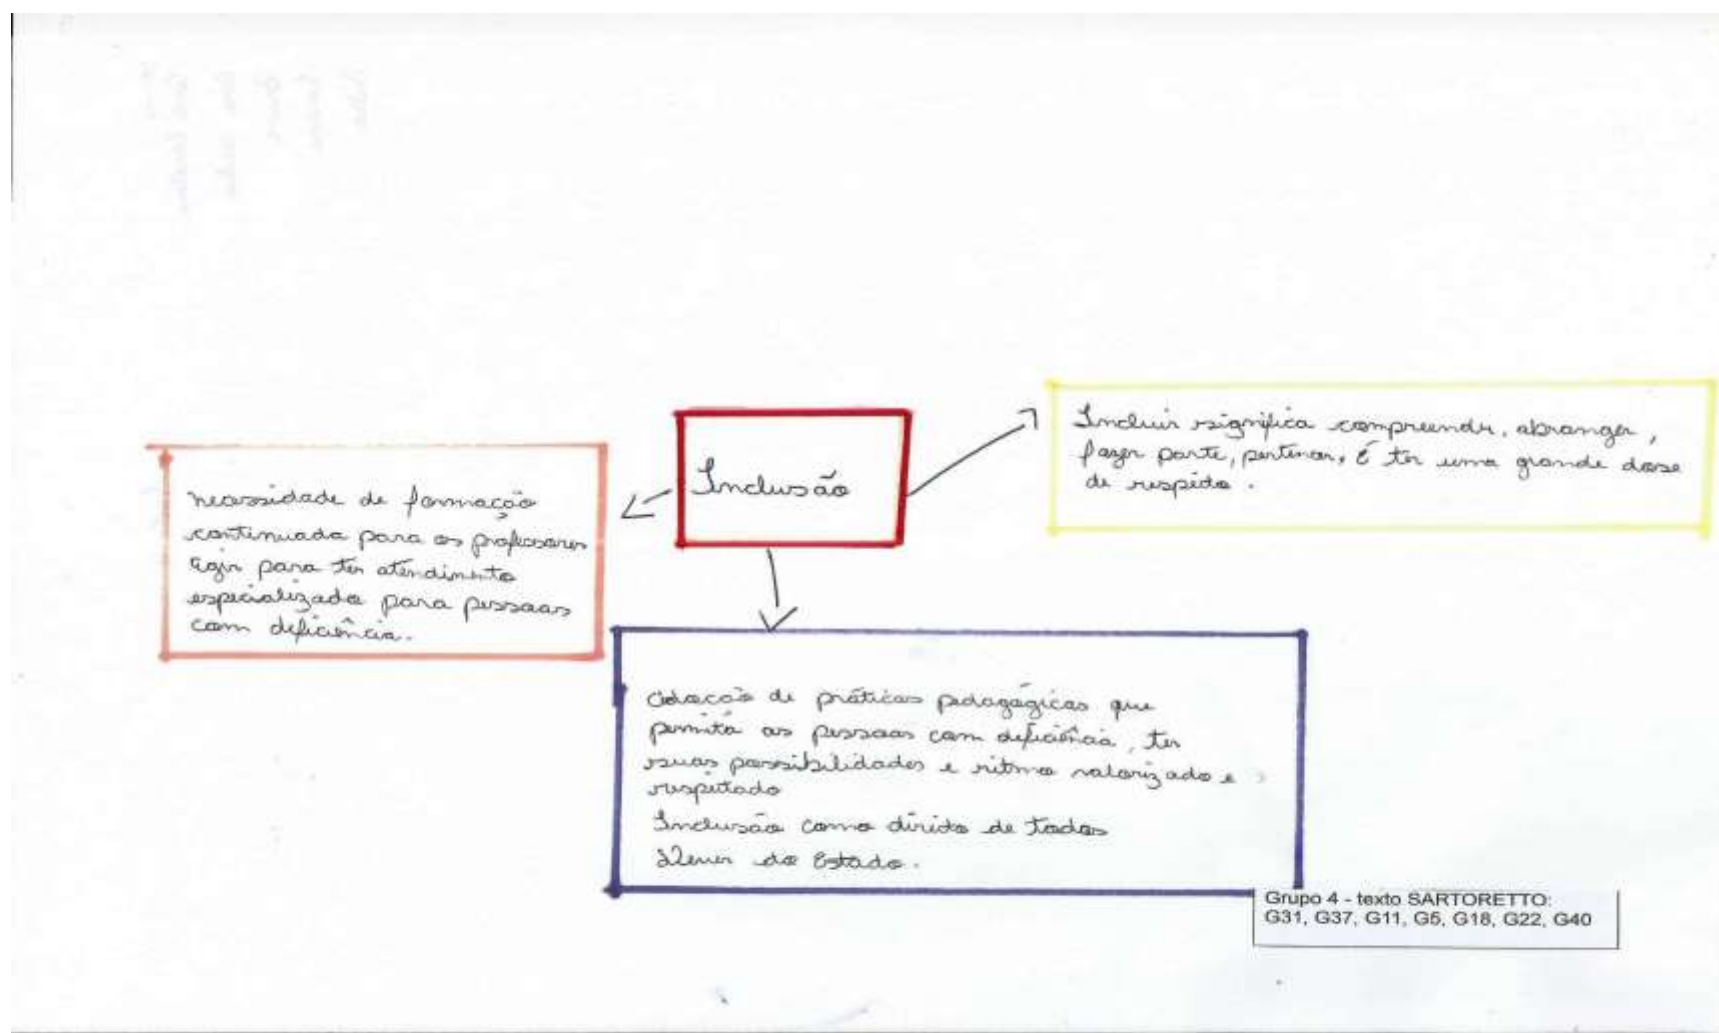 Inclusão
Incluir significa compreender, abranger,
fazer parte, pertencer, É ter uma grande dose
de respeito.
necessidade de formação
continuada para os professores
para ter atendimento
especializado para pessoas
com deficiência.
de práticas pedagógicas que
permita as pessoas com deficiência, ter
suas possibilidades e ritmo valorizado e
respeitado
Inclusão como direito de todos
Dever do Estado.
Grupo 4 - texto SARTORETTO:
G31, G37, G11, G5, G18, G22, G40